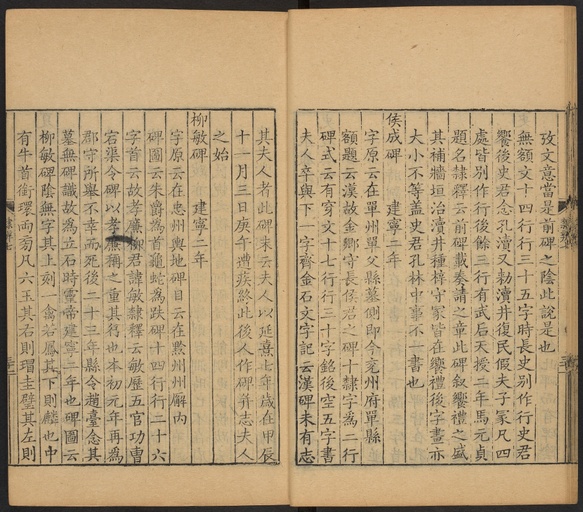 攷文意當是前碑之陰此說是也
無額文十四行行三十五字時長史別作行史君
饗後史君念孔瀆又勑瀆井復民假夫子冢凡四
處皆別作行後餘三行有武后天授二年馬元貞
題名隸釋云前碑載奏請之章此碑叙饗禮之盛
其補牆垣治瀆井種梓守冢皆在饗禮後字畫亦
大小不等蓋史君孔林中事不一書也
侯成碑 建寧二年
字原云在單州單父縣墓側即今兗州府單縣
額題云漢故金鄉守長侯君之碑十隸字為二行
碑式云有穿文十七行行三十字銘後空五字書
夫人卒與下一字齊金石文字記云漢碑未有志
其夫人者此碑末云夫人以延熹七年歲在甲辰
十一月三日庚午遭疾終此後人作碑并志夫人
之始
柳敏碑 建寧二年
字原云在忠州輿地碑目云在黔州州廨內
碑圖云朱爵為首龜蛇為趺碑十四行行二十六
字首云故孝廉柳君諱敏隸釋云敏歷五官功曹
宕渠令碑以孝廉稱之重其得也本初元年再為
郡守所舉不幸而死後二十三年縣令趙臺念其
墓無碑識故為立石時靈帝建寧二年也碑圖云
柳敏碑陰無字其上刻一禽若鳳其下則麟也中
有牛首銜環兩旁凡六玉其右則瑁圭璧其左則